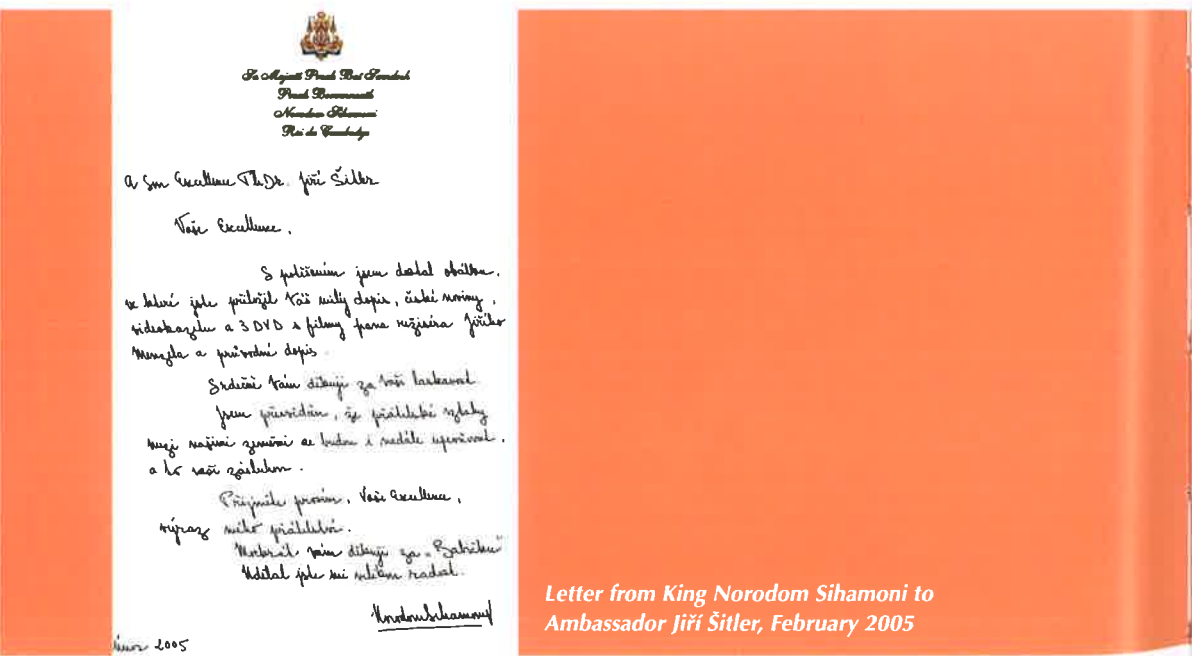 Sa Majesté Preah Bat Samdech
Preah Boromneath
Norodom Sihamoni
Roi du Cambodge
A Son Excellence Th.Dr. Jiří Šitler
Vaše Excellence,
S potěšením jsem dostal obálku,
ve které jste přiložil Váš milý dopis, české noviny,
videokazetu a 3 DVD s filmy pana režiséra Jiřího
Menzela a průvodní dopis.
Srdečně Vám děkuji za Vaši laskavost.
Jsem přesvědčen, že přátelské vztahy
mezi našimi zeměmi se budou i nadále upevňovat,
a to vaší zásluhou.
Přijměte prosím, Vaše Excellence,
výraz mého přátelství.
Mockrát vám děkuji za „Babičku“
Udělal jste mi velkou radost.
Norodom Sihamoni
únor 2005
Letter from King Norodom Sihamoni to
Ambassador Jiří Šitler, February 2005